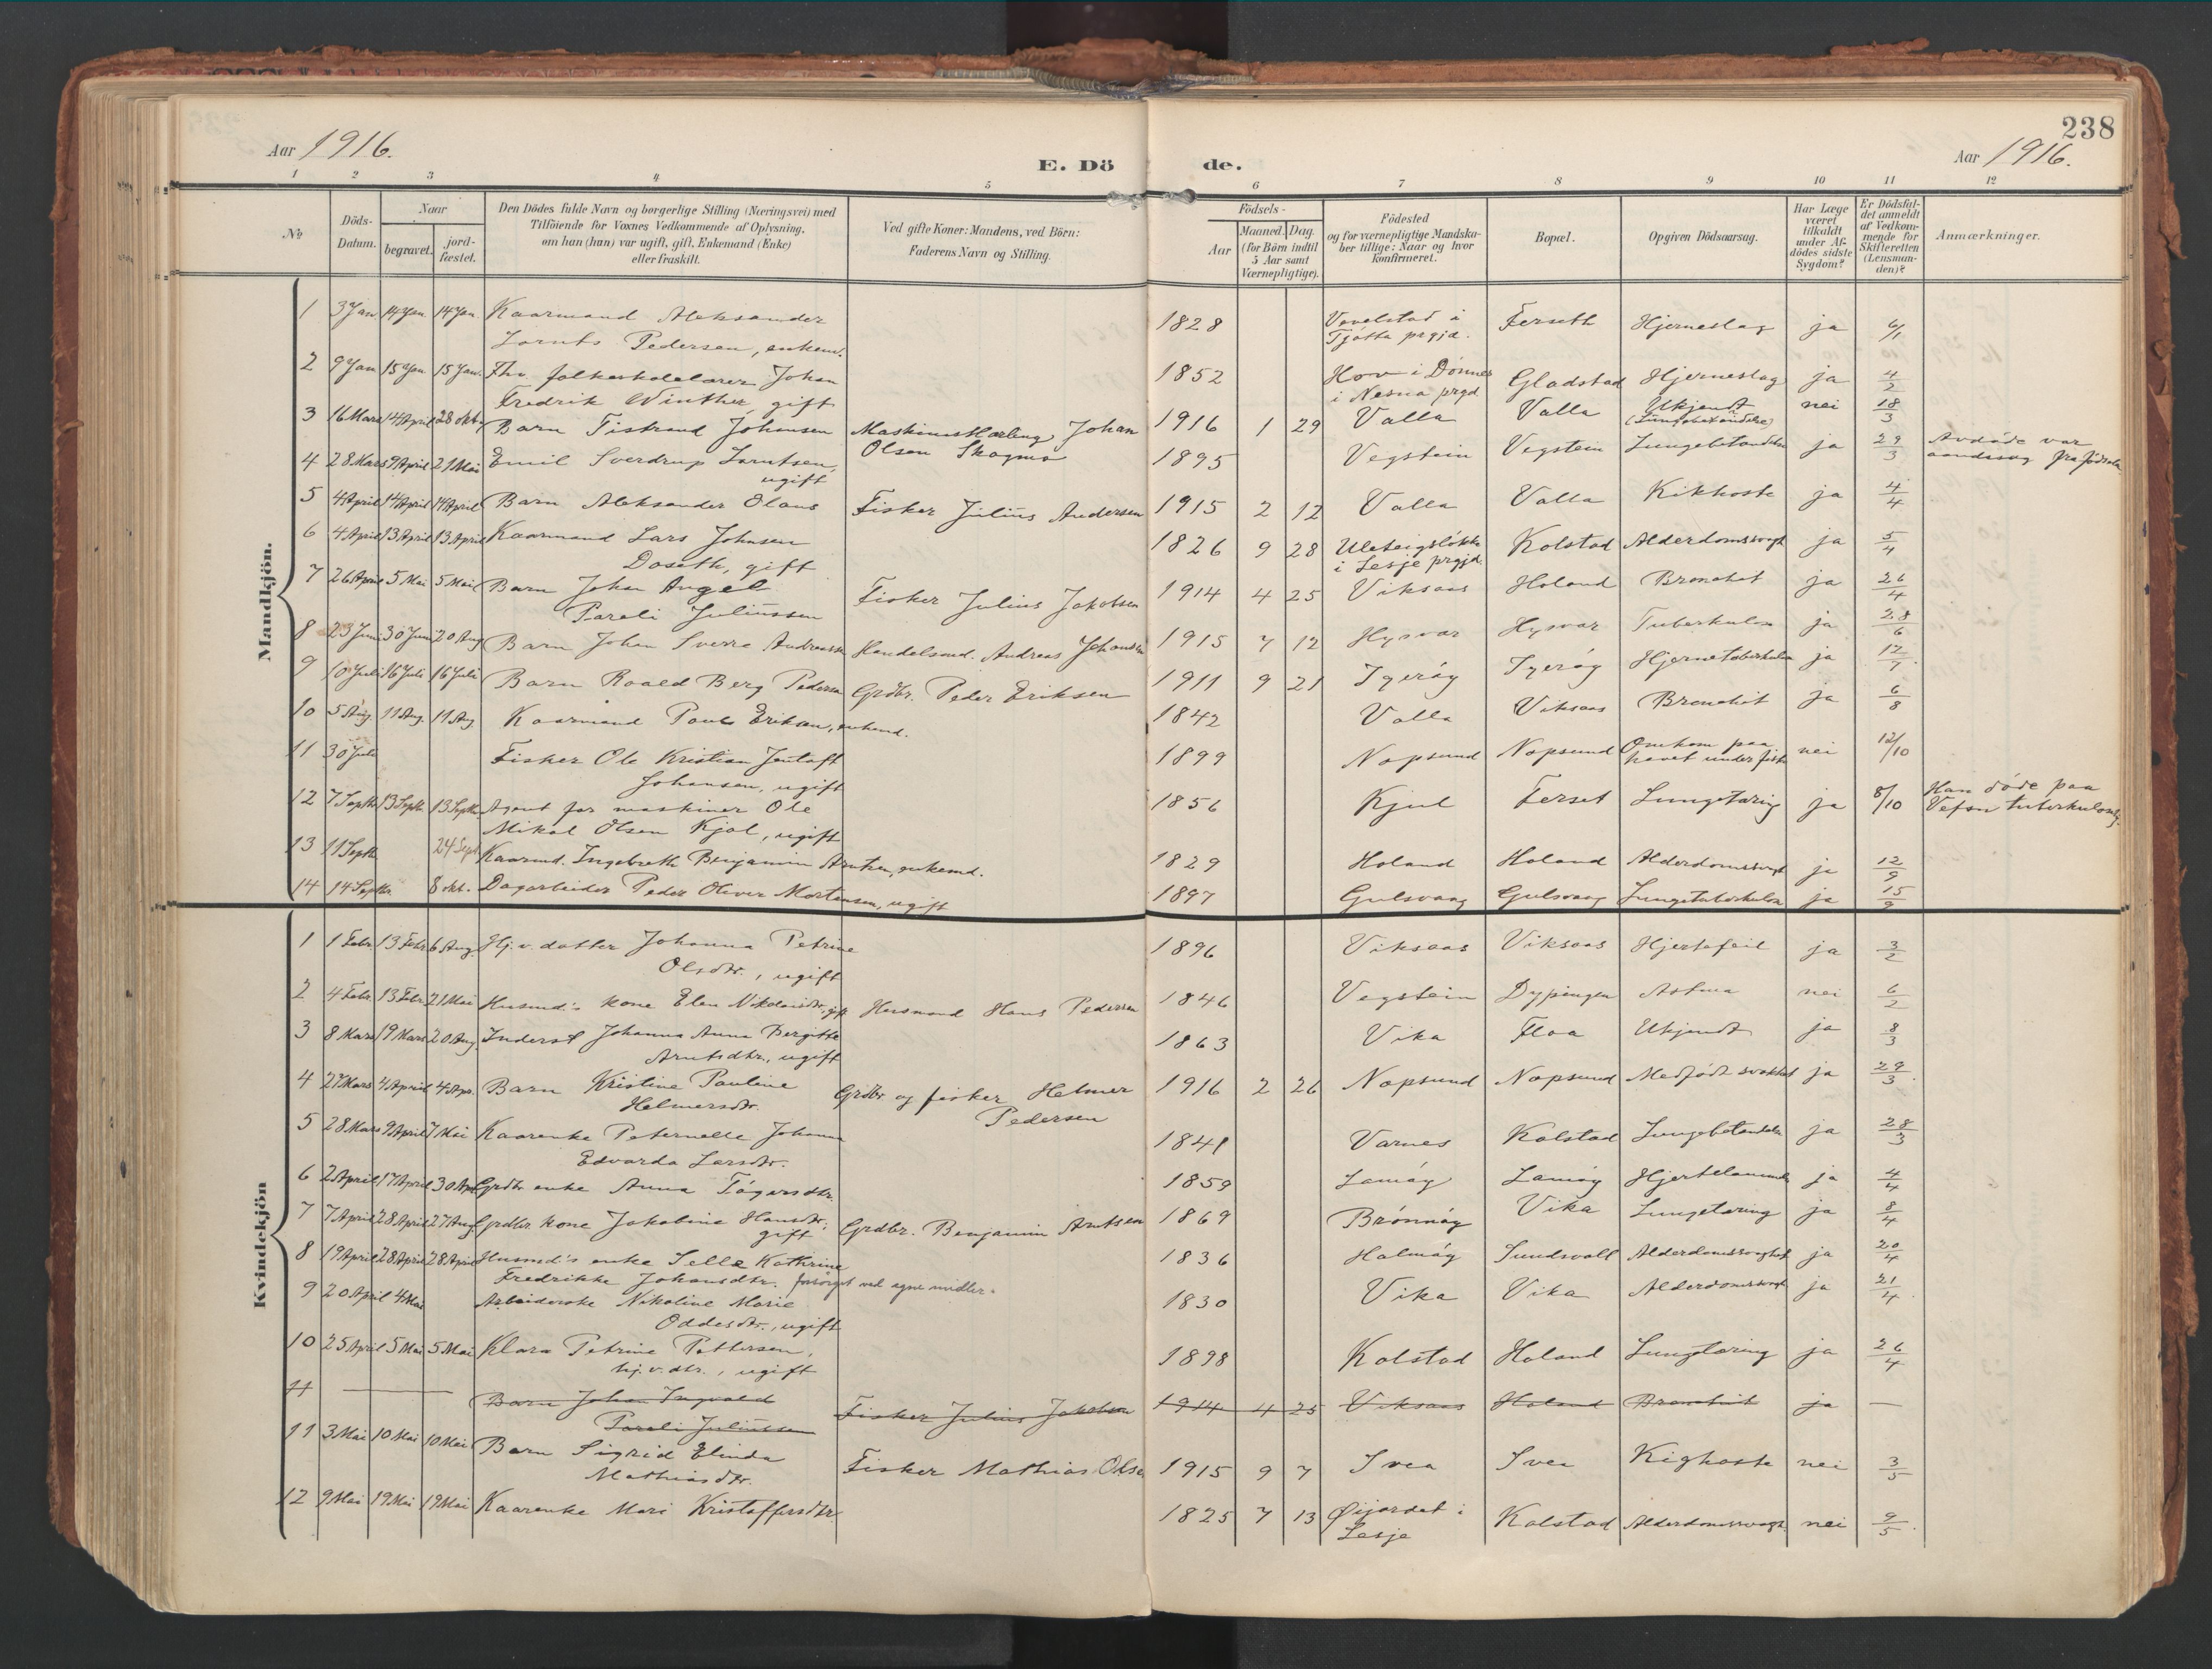 238
Aar 1916.
E. Dö de.
Aar 1916.
1 2 3 4 5 6 7 8 9 10 11 12
No
Döds-Datum.
Naar
begravet.
jord-fæstet.
Den Dödes fulde Navn og borgerlige Stilling (Næringsvei) med
Tilföiende for Voxnes Vedkommende af Oplysning.
om han (hun) var ugift, gift, Enkemand (Enke)
eller fraskilt.
Ved gifte Koner: Mandens, ved Börn:
Faderens Navn og Stilling.
Födsels-
Aar
Maaned. Dag.
(for Börn indtil
5 Aar samt
Værnepligtige).
Födested
og for værnepligtige Mandska-
ber tillige: Naar og hvor
konfirmeret.
Bopæl.
Opgiven Dödsaarsag.
Har Læge
været
tilkaldt
under Af-
dödes sidste
Sygdom?
Er Dödsfal-
det anmeldt
af Vedkom-
mende for
Skifteretten
(Lensman-
den)?
Anmærkninger.
Mandkjön.
1 3 Jan 14 Jan 14 Jan. Kaarmand Aleksander 1828 Vevelstad i Forseth Hjerneslag ja 6/1
Pedersen, enkem. Tjøtta prgjd.
2 9 Jan 15 Jan 15 Jan. Fhv. folkeskolelærer Johan 1852 Hov i Dønnes Gladstad Hjerneslag ja 4/2
Fredrik Winther, gift i Nesna prgd
3 16 Mars 14 April 28 okt. Barn Johansen Johan 1916 1 29 Valla Valla Ukjendt nei 18/3
Olsen Skogmo
4 28 Mars 9 April 21 Mai Emil Sverdrup 1895 Vegstein Vegstein Lungebetændelse ja 29/3 Avdøde var
ugift fra fødselen
5 4 April 14 April 14 April Barn Aleksander Olaus Fisker Julius Andersen 1915 2 12 Valla Valla Kikhoste ja 4/4
6 4 April 13 April 13 April Kaarmand Lars Johnsen 1826 9 28 Kolstad Alderdomssvagh ja 5/4
Doseth, gift i Lesje prgjd.
7 26 April 5 Mai 5 Mai Barn Johan Angel Fisker Julius Jakobsen 1914 4 25 Viksaas Holand Bronchit ja 26/4
Pareli Juliussen
8 23 Juni 30 Juni 20 Aug Barn Johan Sverre Andreassen Handelsmd. Andreas Johansen 1915 7 12 Hysvær Hysvær Tuberkulose ja 28/6
9 10 Juli 16 Juli 16 Juli Barn Roald Berg Pedersen Grdbr. Peder Eriksen 1911 9 21 Igerøy Igerøy Hjernetuberkulose ja 12/7
10 5 Aug. 11 Aug. 11 Aug Kaarmand Paul Eriksen, enkemd. 1842 Valla Viksaas Bronchit ja 6/8
11 30 Juli Fisker Ole Kristian Jentoft 1899 Nopsund Nopsund Omkom paa nei 12/10
Johansen, ugift havet under fiske
12 7 Septb 13 Septb. 13 Septb. Agent for maskiner Ole 1856 Kjul Forset Lungetæring ja 8/10 Han døde paa
Mikal Olsen Kjøl, ugift Vefsn
13 11 Septb 24 Sept Kaarmd. Ingebreth Benjamin Arntsen, enkemd. 1829 Holand Holand Alderdomssvagh ja 12/9
14 14 Septbr 8 okt. Dagarbeider Peder Oliver Mortensen, ugift 1897 Gulsvaag Gulsvaag Lungetuberkulose ja 15/9
Kvindekjön
1 1 Febr. 13 Febr 6 Aug. Hj.v. datter Johanna Petrine 1896 Viksaas Viksaas Hjertefeil ja 3/2
Olsdtr., ugift
2 4 Febr. 13 Febr. 21 Mai Husmd's kone Elen Nikolaisdtr. gift Husmand Hans Pedersen 1846 Vegstein Dypingen Astma nei 6/2
3 8 Mars 19 Mars 20 Aug. Inderst Johanna Anna Bergitte 1863 Vika Floa Ukjendt ja 8/3
Arntsdtr., ugift
4 27 Mars 4 April 4 Apr. Barn Kristine Pauline Grdbr og fisker Helmer 1916 2 26 Nopsund Nopsund Medfødt svakhet ja 29/3
Helmersdtr. Pedersen
5 28 Mars 9 April 7 Mai Kaarenke Peternelle Johanna 1841 Varnes Kolstad Lungebetændelse ja 28/3
Edvarda Larsdtr.
6 2 April 17 April 30 Apr Grdbr enke Anna Tøgersdtr. 1859 Lamøy Lamøy Hjertelammelse ja 4/4
7 7 April 28 April 27 Aug. Grdbr. kone Jakobine Hansdtr. Grdbr. Benjamin Arntsen 1869 Brønnøy Vika Lungetæring ja 8/4
gift
8 19 April 28 April 28 April Husmd's enke Selle Kathrine 1836 Halmøy Sundsvoll Alderdomssvaghet ja 20/4
Fredrikke Johansdtr. forsørget ved egne midler.
9 20 April 4 Mai Arbeiderske Nikoline Marie 1830 Vika Vika Alderdomssvagh ja 21/4
Oddesdtr., ugift
10 25 April 5 Mai 5 Mai Klara Petrine Pettersen, 1898 Kolstad Holand Lungetæring ja 26/4
hj.v. dtr., ugift
11 Barn Johan Ingvald Fisker Julius Jakobsen 1914 4 25 Viksaas Holand Bronchit ja —
Pareli Juliussen
11 3 Mai 10 Mai 10 Mai Barn Sigrid Elinda Fisker Mathias Olsen 1915 9 7 Ivea Ivea Kighoste nei 3/5
Mathiasdtr.
12 9 Mai 19 Mai 19 Mai Kaarenke Mari Kristoffersdtr. 1825 7 13 Øijordet i Kolstad Alderdomssvagh. nei 9/5
Lesje